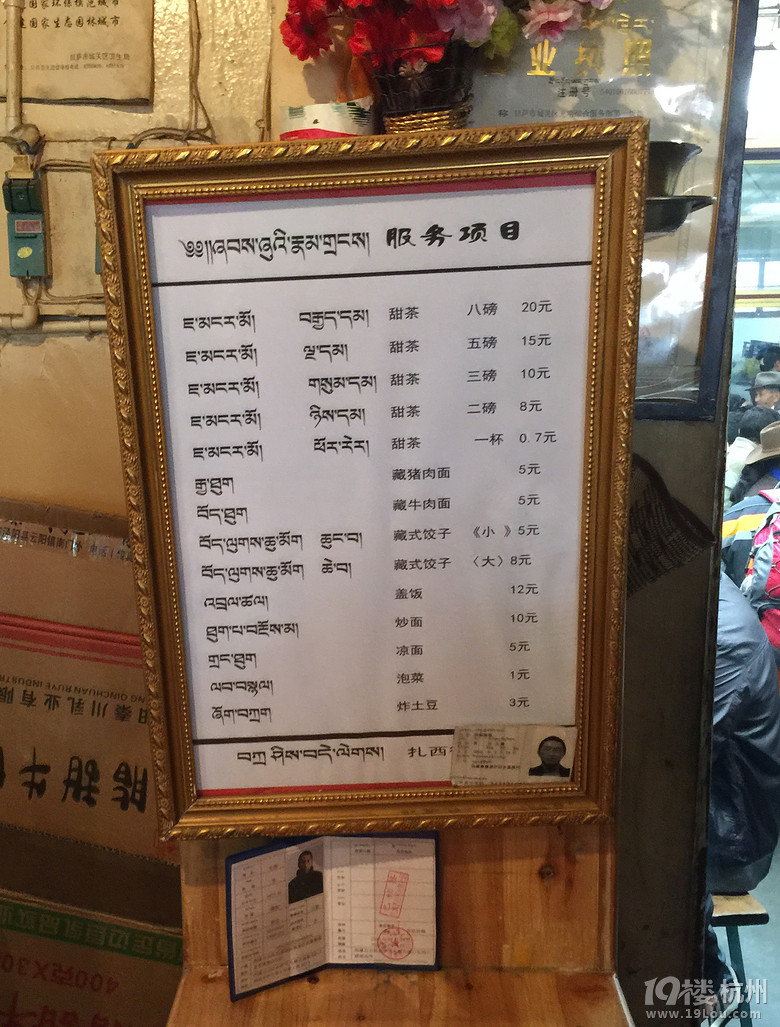 国家环保模范城市
国家生态园林城市
业 执 照
注册号
༄༅།།ཞབས་ཞུའི་རྣམ་གྲངས། 服务项目
ཇ་མངར་མོ། བརྒྱད་དམ། 甜茶 八磅 20元
ཇ་མངར་མོ། ལྔ་དམ། 甜茶 五磅 15元
ཇ་མངར་མོ། གསུམ་དམ། 甜茶 三磅 10元
ཇ་མངར་མོ། ཉིས་དམ། 甜茶 二磅 8元
ཇ་མངར་མོ། ཕོར་རེར། 甜茶 一杯 0.7元
རྒྱ་ཐུག 藏猪肉面 5元
བོད་ཐུག 藏牛肉面 5元
བོད་ལུགས་ཆུ་མོག ཆུང་བ། 藏式饺子 《小 》5元
བོད་ལུགས་ཆུ་མོག ཆེ་བ། 藏式饺子 〈大〉8元
འབྲལ་ཚལ། 盖饭 12元
ཐུག་པ་བརྔོས་མ། 炒面 10元
གྲང་ཐུག 凉面 5元
ལབ་བསྙལ། 泡菜 1元
ཞོག་བཀྲག 炸土豆 3元
བཀྲ་ཤིས་བདེ་ལེགས། 扎西
秦川乳业有限
QINCHUAN RUYE INDUSTR
脂甜牛
400克X30
19楼杭州
www.19Lou.com